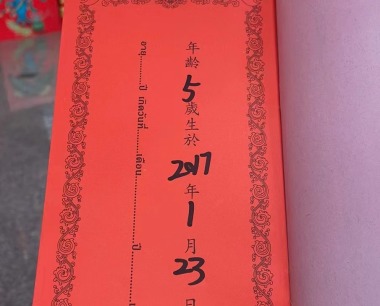 年齡5歲生於2017年1月23日
อายุ..........ปี เกิดวันที่..........เดือน....................ปี